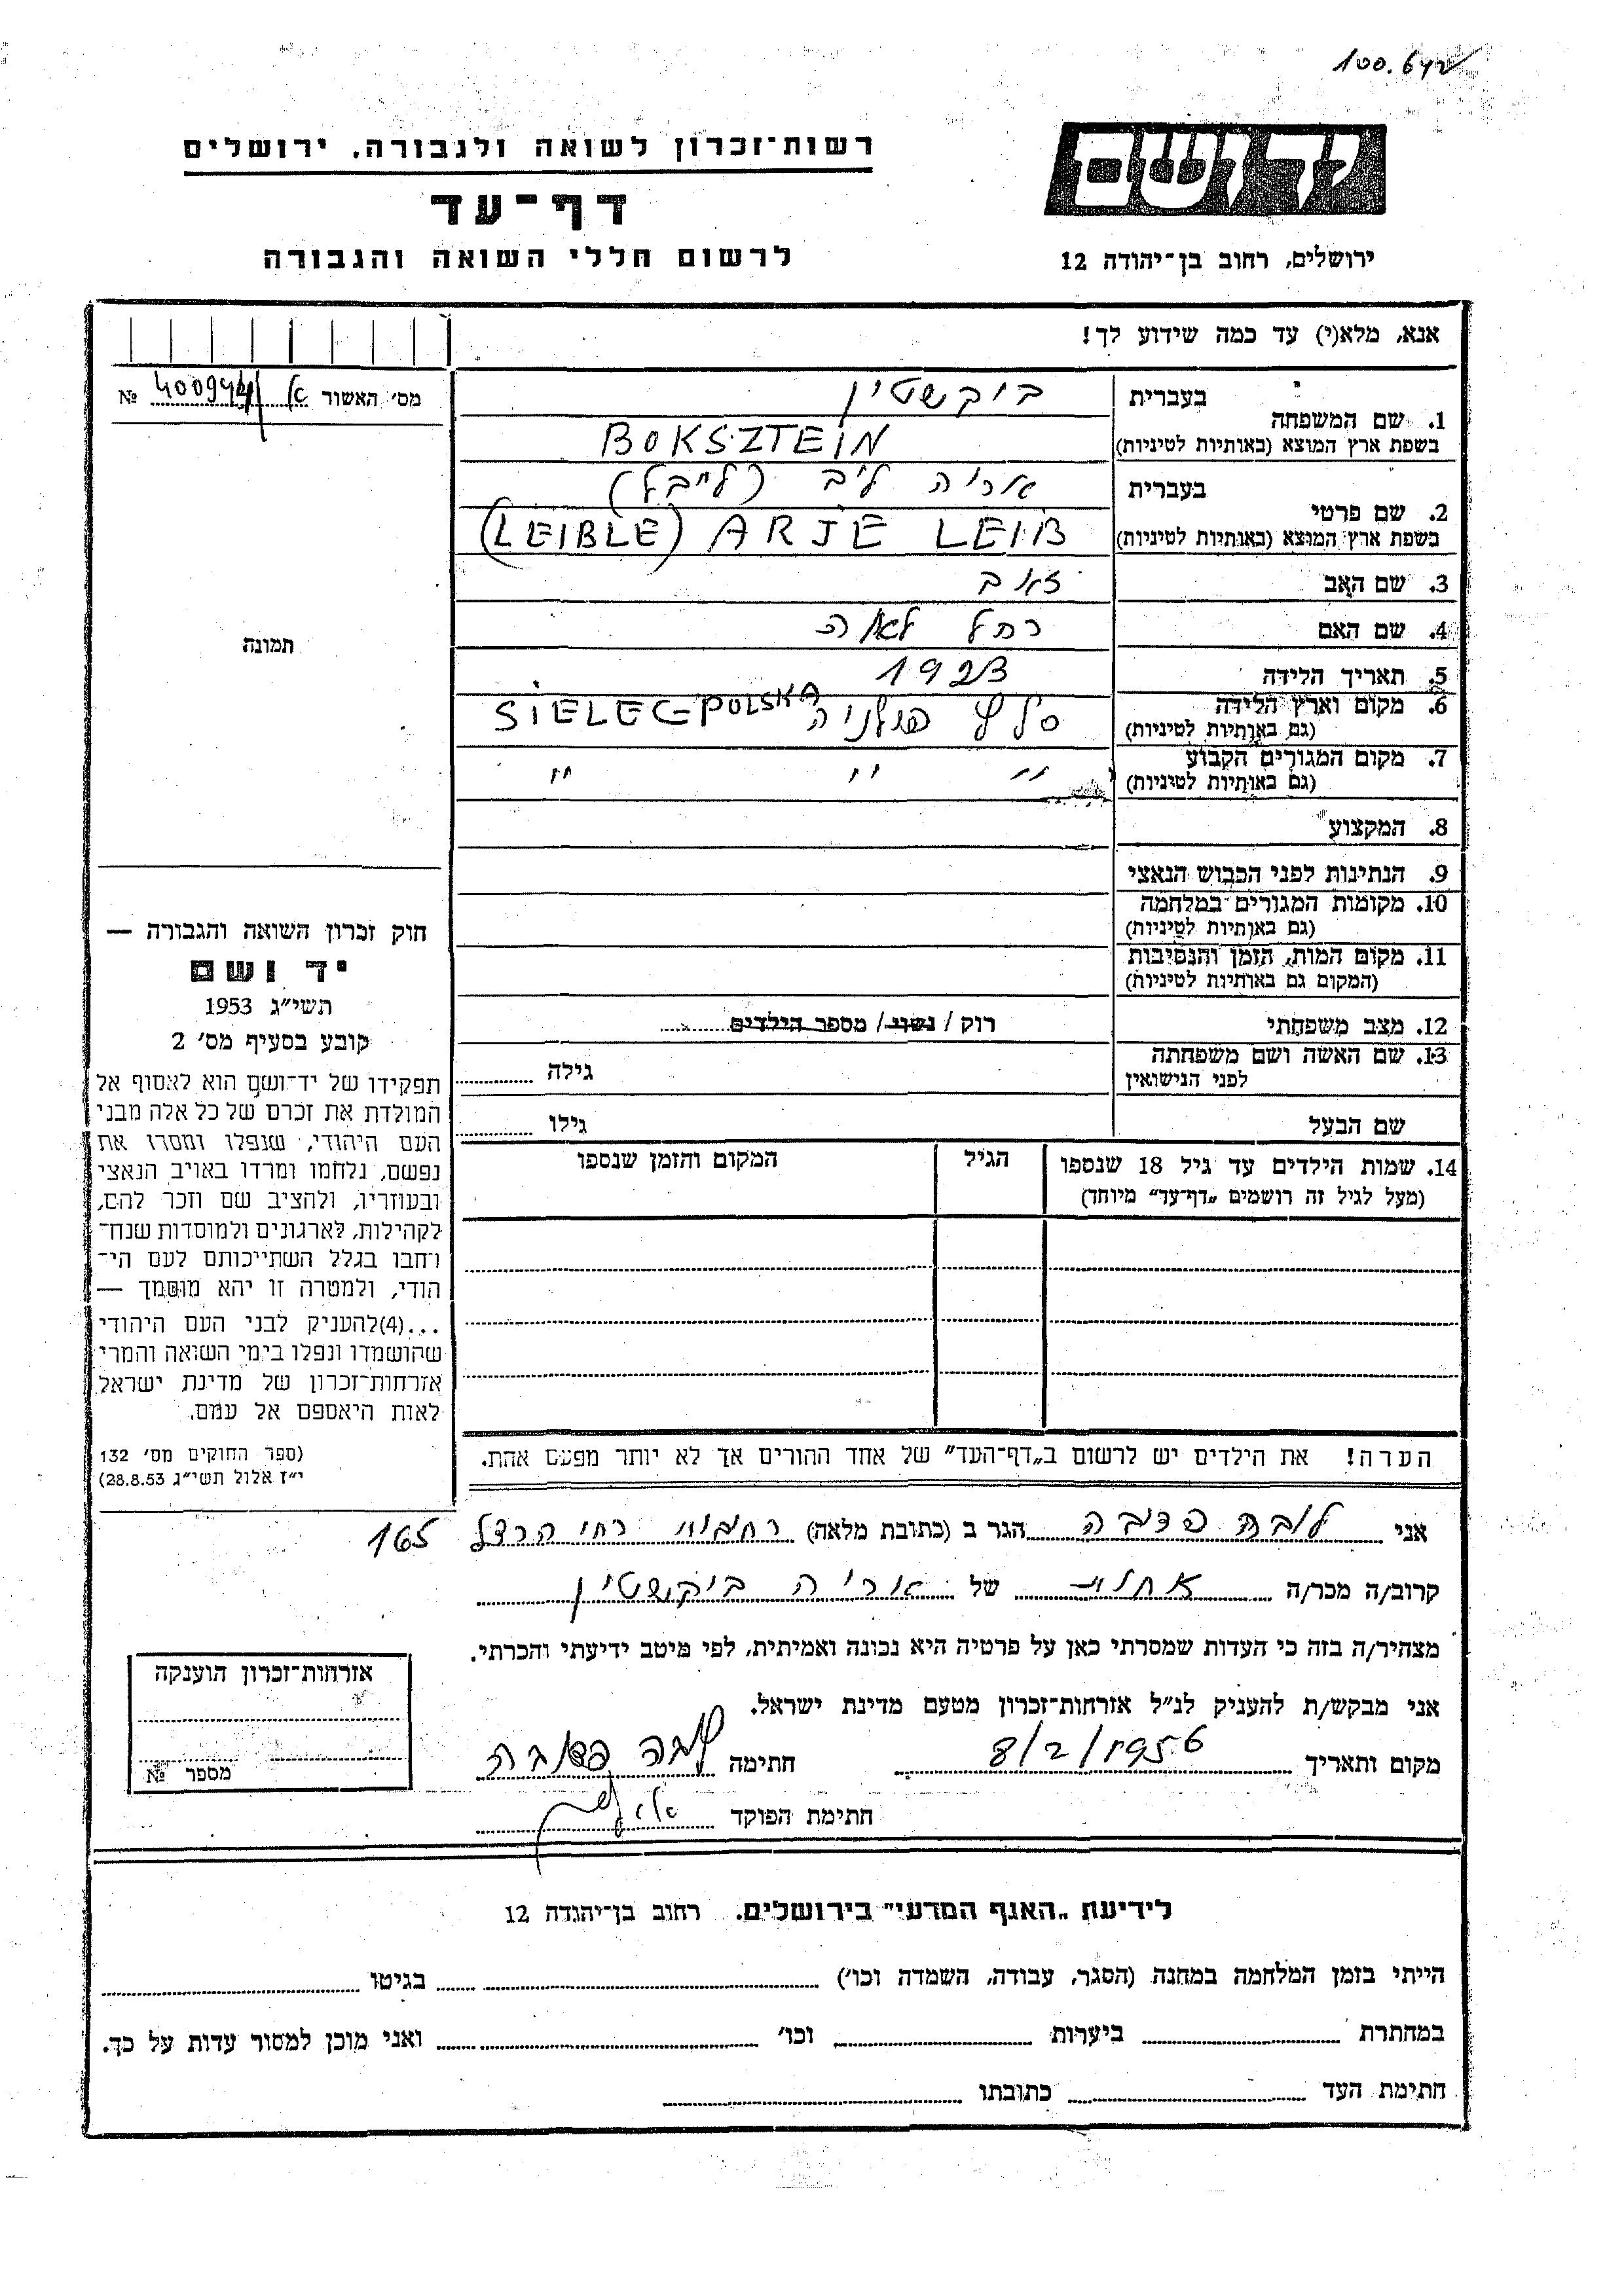 100.642
רשות־זכרון לשואה ולגבורה, ירושלים
יד ושם
דף־עד
לרשום חללי השואה והגבורה
ירושלים, רחוב בן־יהודה 12
אנא, מלא(י) עד כמה שידוע לך!
מס׳ האשור א/ 400944 №
1. שם המשפחה
בעברית בוקשטין
בשפת ארץ המוצא (באותיות לטיניות) BOKSZTEIN
2. שם פרטי
בעברית אריה ליב (לייבל)
בשפת ארץ המוצא (באותיות לטיניות) (LEIBLE) ARJE LEIB
3. שם האב זאב
4. שם האם רחל לאה
תמונה
5. תאריך הלידה 1923
6. מקום וארץ הלידה סלץ פולניה SIELEC POLSKA
(גם באותיות לטיניות)
7. מקום המגורים הקבוע " " "
(גם באותיות לטיניות)
8. המקצוע
9. הנתינות לפני הכבוש הנאצי
10. מקומות המגורים במלחמה
(גם באותיות לטיניות)
11. מקום המות, הזמן והנסיבות
(המקום גם באותיות לטיניות)
12. מצב משפחתי רוק / נשוי / מספר הילדים
13. שם האשה ושם משפחתה גילה
לפני הנישואין
שם הבעל גילו
14. שמות הילדים עד גיל 18 שנספו הגיל המקום והזמן שנספו
(מעל לגיל זה רושמים „דף־עד״ מיוחד)
חוק זכרון השואה והגבורה —
יד ושם
תשי״ג 1953
קובע בסעיף מס׳ 2
תפקידו של יד־ושם הוא לאסוף אל
המולדת את זכרם של כל אלה מבני
העם היהודי, שנפלו ומסרו את
נפשם, נלחמו ומרדו באויב הנאצי
ובעוזריו, ולהציב שם וזכר להם,
לקהילות, לארגונים ולמוסדות שנח־
רחבו בגלל השתייכותם לעם הי־
הודי, ולמטרה זו יהא מוסמך —
...(4)להעניק לבני העם היהודי
שהושמדו ונפלו בימי השואה והמרי
אזרחות־זכרון של מדינת ישראל
לאות היאספם אל עמם.
(ספר החוקים מס׳ 132
י״ז אלול תשי״ג 28.8.53)
הערה! את הילדים יש לרשום ב„דף־העד״ של אחד ההורים אך לא יותר מפעם אחת.
אני לובה הגר ב (כתובת מלאה) רחובות רח׳ הרצל 165
קרוב/ה מכר/ה אחות של אריה בוקשטין
מצהיר/ה בזה כי העדות שמסרתי כאן על פרטיה היא נכונה ואמיתית, לפי מיטב ידיעתי והכרתי.
אני מבקש/ת להעניק לנ״ל אזרחות־זכרון מטעם מדינת ישראל.
מקום ותאריך 8/2/1956 חתימה לובה
חתימת הפוקד
אזרחות־זכרון הוענקה
מספר №
לידיעת „האגף המדעי״ בירושלים, רחוב בן־יהודה 12
הייתי בזמן המלחמה במחנה (הסגר, עבודה, השמדה וכו׳) בגיטו
במחתרת ביערות וכו׳ ואני מוכן למסור עדות על כך.
חתימת העד כתובתו